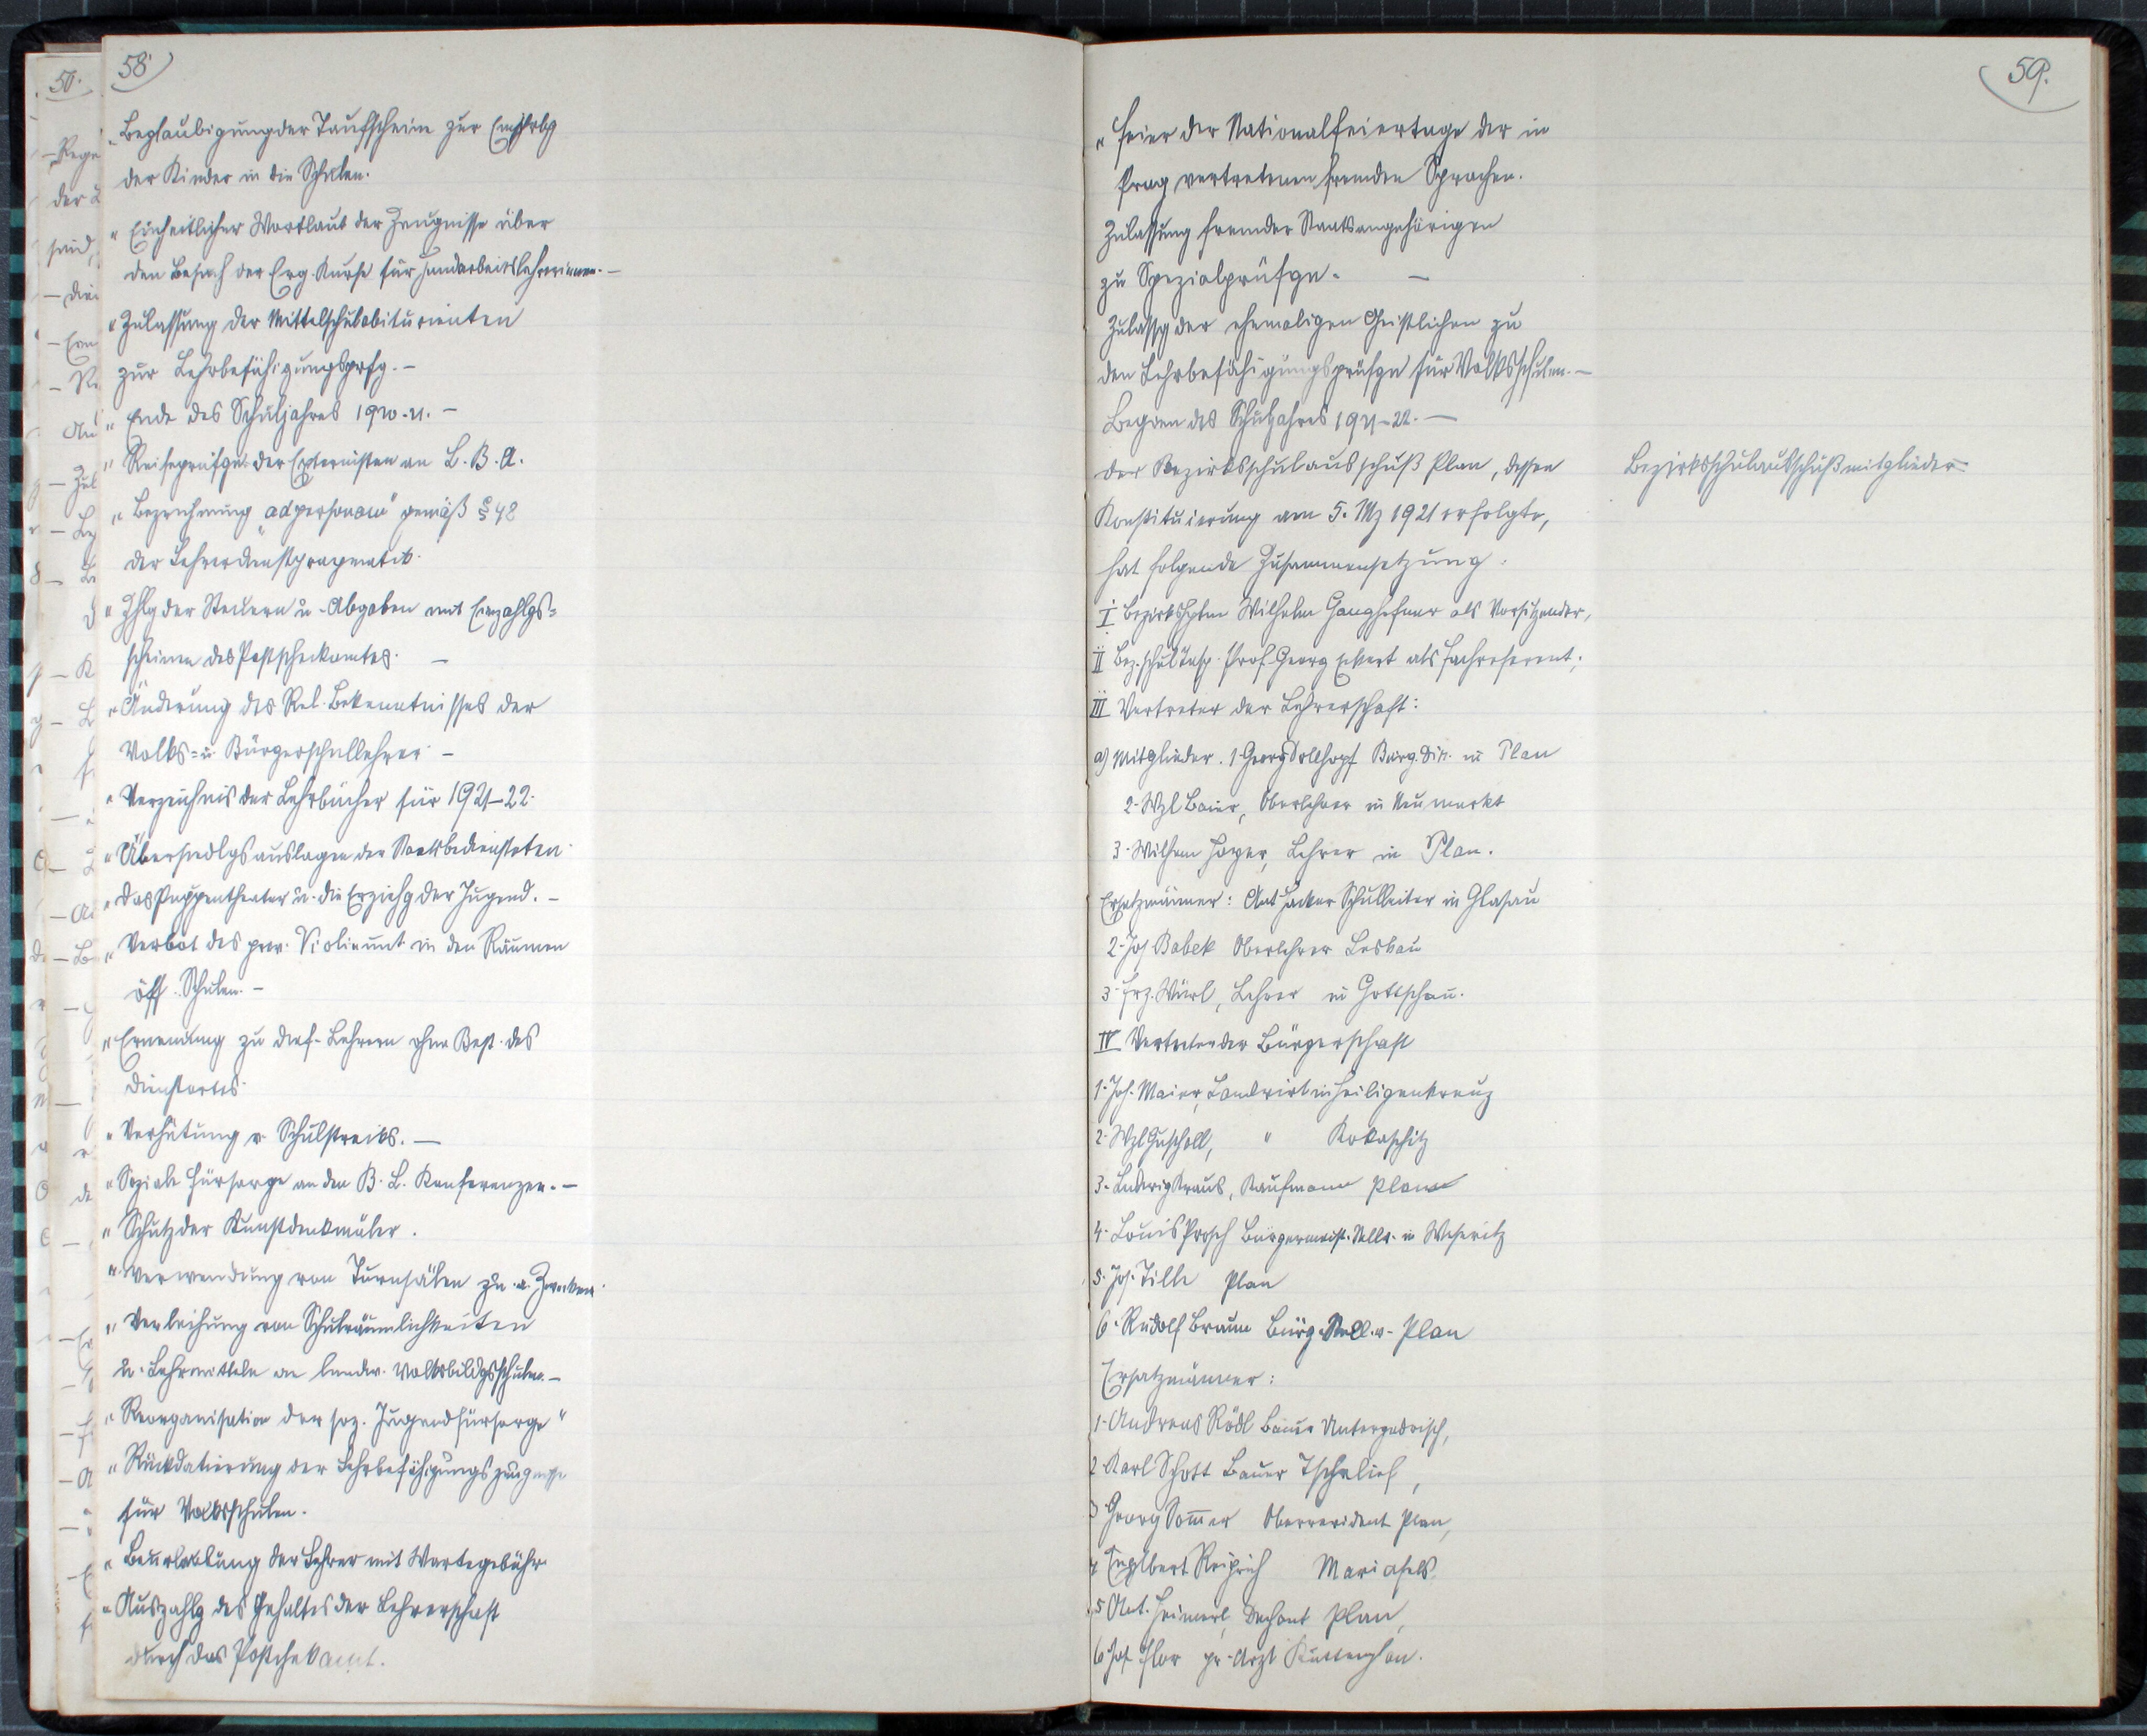 58
„ Beglaubigung der Taufscheine zur Einschrbg
der Kinder in die Schulen.
„ Einheitlicher Wortlaut der Zeugnisse über
den Besuch der Erg. Kurse für Handarbeitslehrerinnen. –
„ Zulassung der Mittelschulabiturienten
zur Lehrbefähigungsprfg. –
„ Ende des Schuljahres 1920-21. –
„ Reifeprüfgn der Externisten an L. B. A.
„ Bezeichnung „ad personam“ gemäß § 48
der Lehrerdienstpragmatik.
„ Zhlg der Steuern u. Abgaben mit Einzahlgs=
scheinen des Postscheckamtes. –
„ Änderung des Rel. Bekenntnisses der
Volks= u. Bürgerschullehrer –
„ Verzeichnis der Lehrbücher für 1921–22.
„ Übersiedlgsauslagen der Staatsbediensteten.
„ Das Puppentheater u. die Erziehg der Jugend. –
„ Verbot des priv. Violinunt in den Räumen
öff. Schulen. –
„ Ernennung zu def. Lehrern ohne Best. des
Dienstortes.
„ Verhütung v. Schulstreiks. –
„ Soziale Fürsorge an den B. L. Konferenzen. –
„ Schutz der Kunstdenkmäler.
„ Verwendung von Turnsälen zu a. Zwecken.
„ Verleihung von Schulräumlichkeiten
u. Lehrmitteln an landw. Volksbildgsschulen. –
„ Reorganisation der soz. Jugendfürsorge“
„ Rückdatierung der Lehrbefähigungszeugnisse
für Volksschulen.
„ Beurlaubung der Lehrer mit Wartegebühr
„ Auszahlg des Gehaltes der Lehrerschaft
durch das Postchekamt.
59.
„ Feier der Nationalfeiertage der in
Prag vertretenen fremden Sprachen.
Zulassung fremder Staatsangehörigen
zu Spezialprüfgn. –
Zulassg der ehemaligen Geistlichen zu
den Lehrbefähigungsprüfgn für Volksschulen. –
Beginn des Schuljahres 1921–22. –
Der Bezirksschulausschuß Plan, dessen
Bezirksschulausschußmitglieder
Konstituierung am 5. Mz 1921 erfolgte,
hat folgende Zusammensetzung:
I Bezirkshptm Wilhelm Ganghofner als Vorsitzender,
II Bez. Schul Insp. Prof. Georg Eckert als Fachreferent;
III Vertreter der Lehrerschaft:
a) Mitglieder. 1. Georg Dollhopf Bürg. Dir. in Plan
2. Wzl Baier, Oberlehrer in Neumarkt
3. Wilhem Hoyer, Lehrer in Plan.
Ersatzmänner: Ant Hacker Schulleiter in Glasau
2. Jos Babek Oberlehrer Leskau
3. Frz. Würl, Lehrer in Gottschau.
IV Vertreter der Bürgerschaft
1. Joh. Maier, Landwirt in Heiligenkreuz
2. Wzl Guscholl, „ Kokaschitz
3. Ludwig Kraus, Kaufmann Plan
4. Louis Prosch Bürgermeist. Stellv. in Weseritz
5. Jos. Tille Plan
6. Rudolf Braun Bürg. Stell.v. Plan
Ersatzmänner:
1. Andreas Rödl Bauer Untergodrisch,
2 Karl Schott Bauer Tschelief,
3 Georg Sommer Oberrevident Plan,
4 Englbert Reiprich Mariafels.
5 Ant. Heimerl, Dechant Plan,
6 Jos Flor pr. Arzt Kuttenplan.